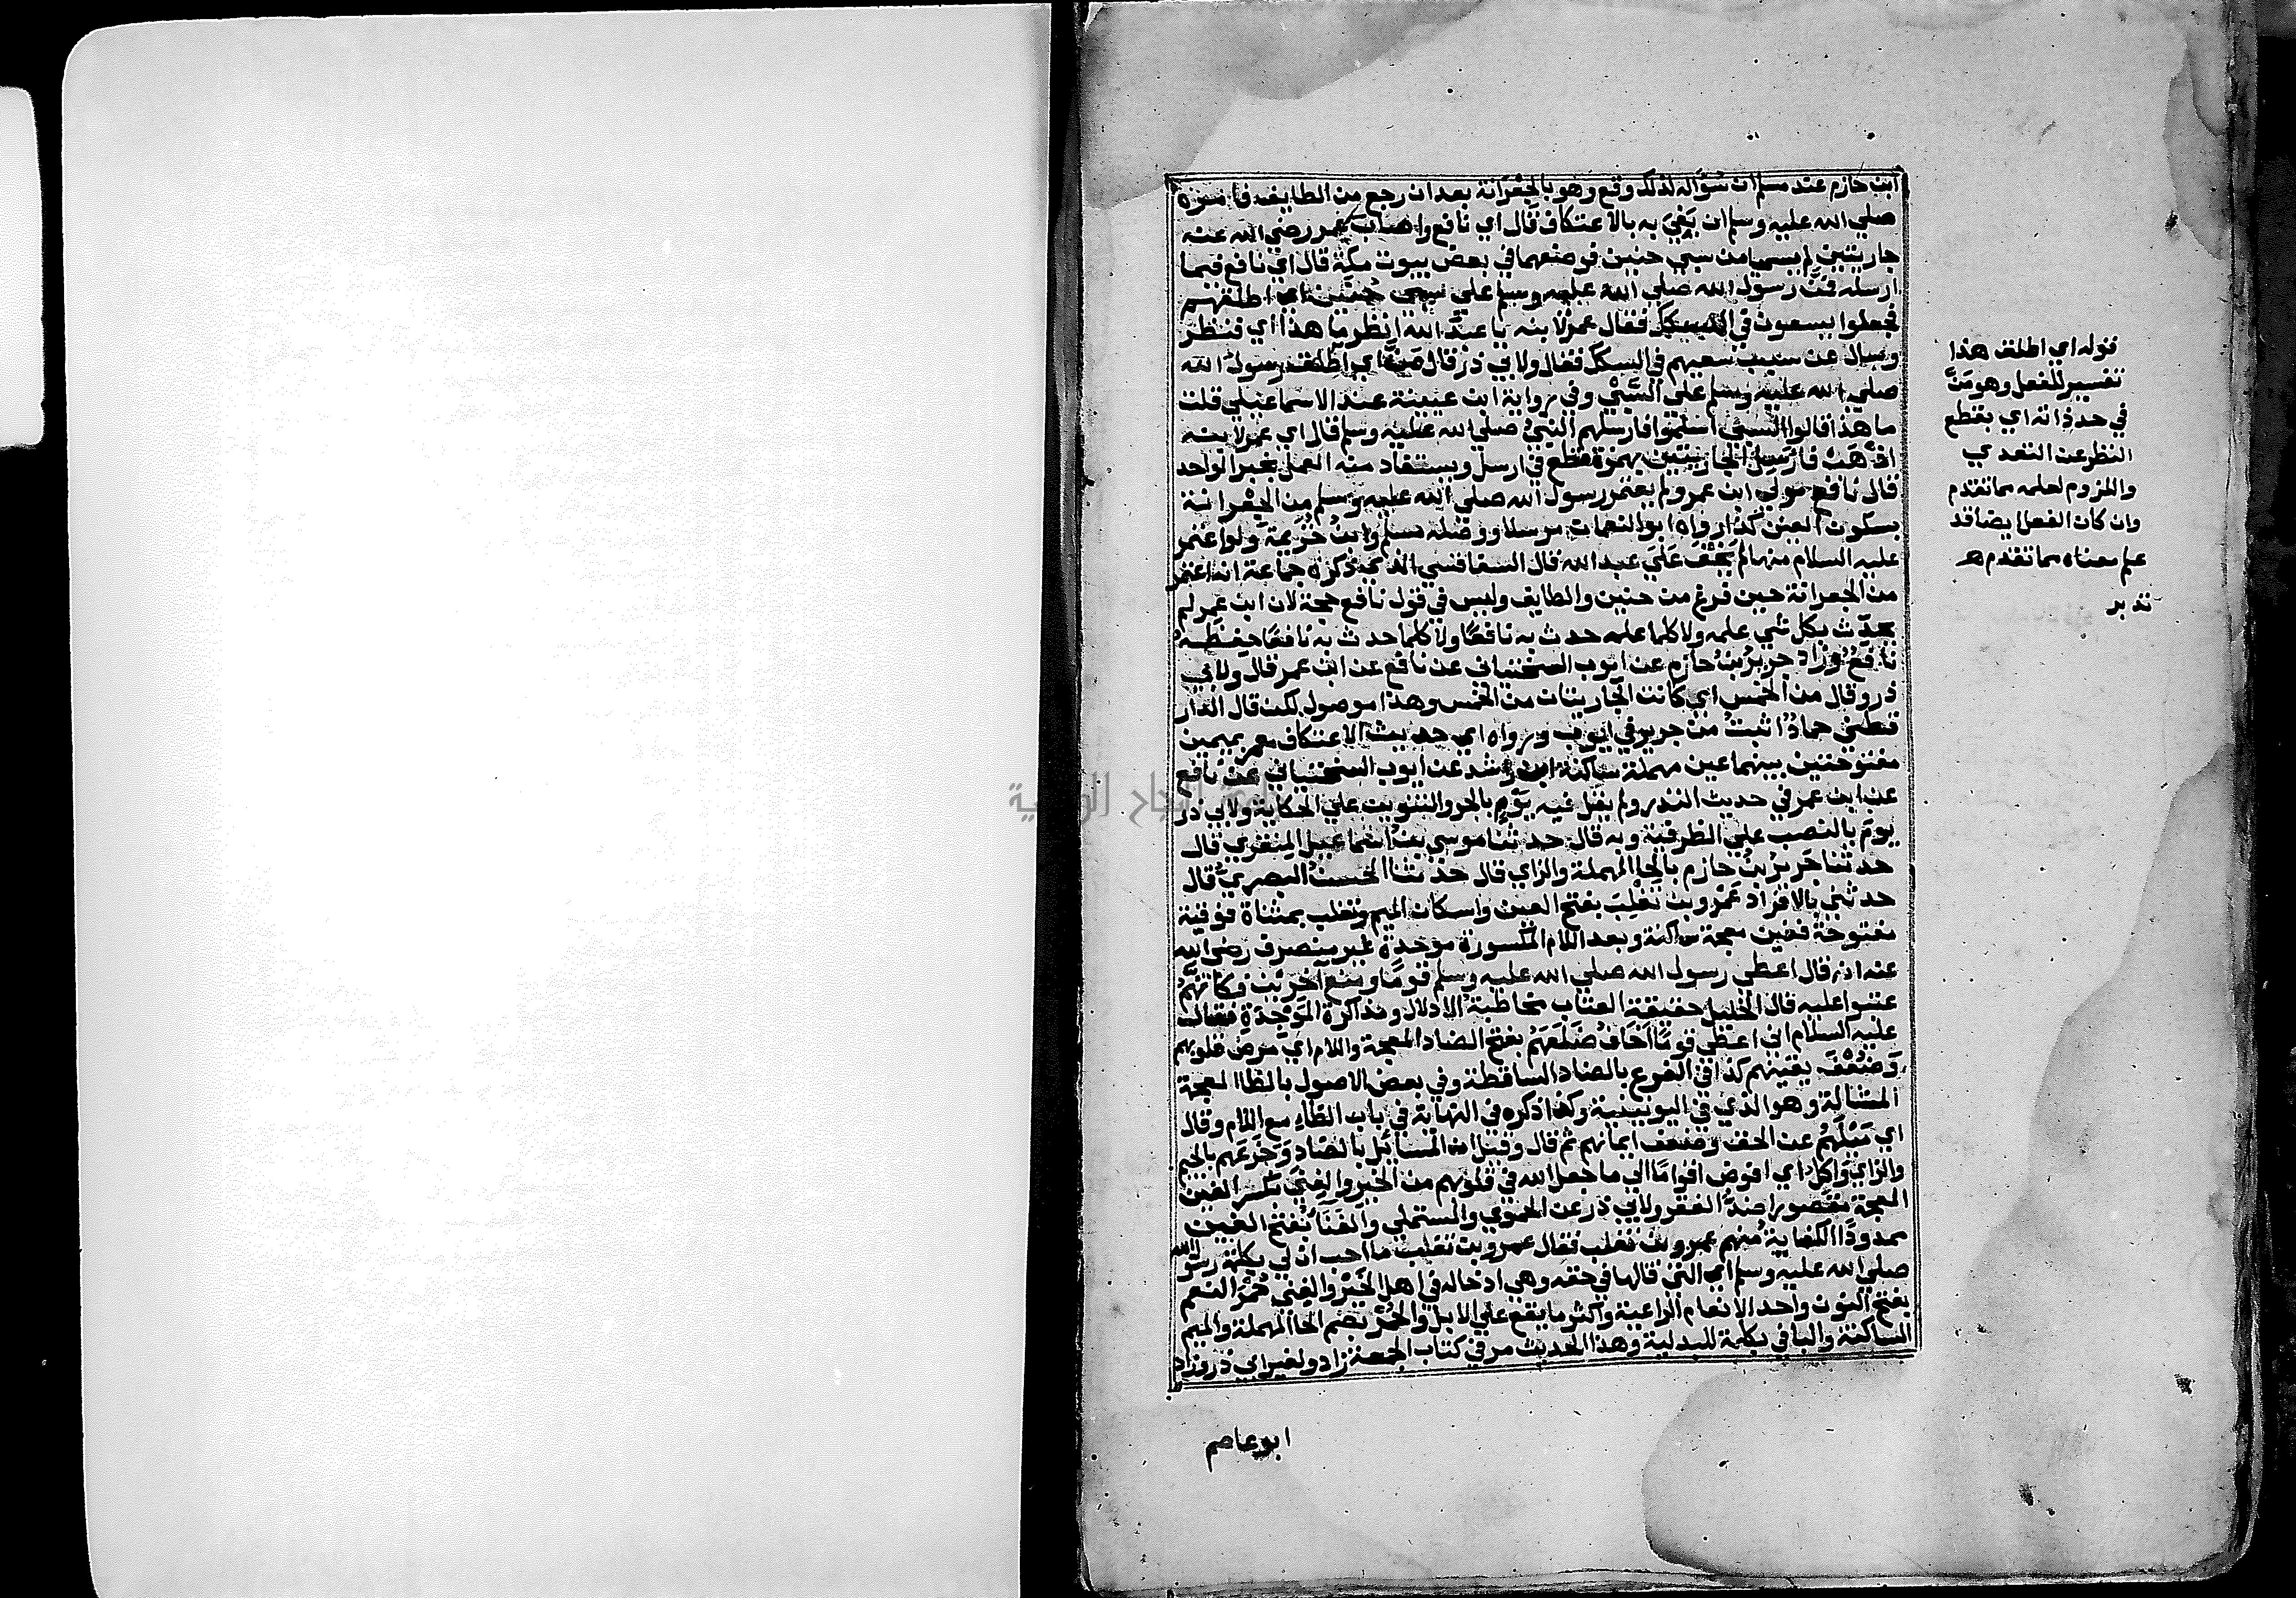 ابن حازم عند مسلم ان سؤاله لذلك وقع وهو بالجعرانة بعد ان رجع من الطايف فامره
صلي الله عليه وسلم ان يفي به بالاعتكاف قال اي نافع واصاب عمر رضي الله عنه
جاريتين لم يسميا من سبي حنين فوضعهما في بعض بيوت مكة قال اي نافع فيما
ارسله فمن رسول الله صلي الله عليه وسلم علي سبي حنين اي اطلقهم
فجعلوا يسعون في السكك فقال عمر لابنه يا عبد الله انظر ما هذا اي فنظر
وسال عن سبب سعيهم في السكك فقال ولابي ذر قال من اي اطلق رسول الله
صلي الله عليه وسلم علي السبي وفي رواية ابن عيينة عند الاسماعيلي قلت
ما هذا قالوا السبي اسلموا فارسلهم النبي صلي الله عليه وسلم قال اي عمر لابنه
اذهب فارسل الجاريتين بهمزة قطع في ارسل ويستفاد منه العمل بخبر الواحد
قال نافع مولي ابن عمر ولم يعتمر رسول الله صلي الله عليه وسلم من الجعرانة
بسكون العين كذا رواه ابو النعمان مرسلا ووصله مسلم وابن خزيمة ولو اعتمر
عليه السلام منها لم يخف علي عبد الله قال السفاقسي الذي ذكره جماعة انه اعتمر
من الجعرانة حين فرغ من حنين والطايف وليس في قول نافع حجة لان ابن عمر لم
يحدث بكل شي علمه ولا كلما علمه حدث به نافعا ولا كلما حدث به نافعا حفظه
نافع وزاد جرير بن حازم عن ايوب السختياني عن نافع عن ابن عمر قال ولابي
ذر وقال من الخمس اي كانت الجاريتان من الخمس وهذا موصول لكن قال الدار
قطني حماد اثبت من جرير في ايوب ورواه اي حديث الاعتكاف معمر بميمين
مفتوحتين بينهما عين مهملة ساكنة ابن راشد عن ايوب السختياني عن نافع
عن ابن عمر في حديث النذر ولم يقل فيه يوم بالجر والتنوين علي الحكاية ولابي ذر
يوم بالنصب علي الظرفية وبه قال حدثنا موسي بن اسماعيل المنقري قال
حدثنا جرير بن حازم بالحا المهملة والزاي قال حدثنا الحسن البصري قال
حدثني بالافراد عمرو بن تغلب بفتح العين واسكان الميم وتغلب بمثناة فوقية
مفتوحة فغين معجمة ساكنة وبعد اللام المكسورة موحدة غير منصرف رضي الله
عنه انه قال اعطي رسول الله صلي الله عليه وسلم قوما ومنع آخرين فكانهم
عتبوا عليه قال الخليل حقيقة العتاب مخاطبة الادلال ومذاكرة الموجدة فقال
عليه السلام اني اعطي قوما اخاف ضلعهم بفتح الضاد المعجمة واللام اي مرض قلوبهم
وضعف يقينهم كذا في الفرع بالضاد الساقطة وفي بعض الاصول بالظا المعجمة
المشالة وهو الذي في اليونينية وكذا ذكره في النهاية في باب الظاء مع اللام وقال
اي ميلهم عن الحق وضعف ايمانهم ثم قال وقيل ان المسايل بالضاد وجزعهم بالجيم
والزاي واكل اي افوض اقواما الي ما جعل الله في قلوبهم من الخير والغني بكسر الغين
المعجمة مقصورا ضد الفقر ولابي ذر عن الحموي والمستملي والغناء بفتح الغين
ممدودا الكفاية منهم عمرو بن تغلب فقال عمرو بن تغلب ما احب ان لي بكلمة رسول الله
صلي الله عليه وسلم اي التي قالها في حقه وهي ادخاله في اهل الخير والغني حمر النعم
بفتح النون واحد الانعام الراعية واكثر ما يقع علي الابل والحمر بضم الحا المهملة والميم
الساكنة والبا في بكلمة للبدلية وهذا الحديث مر في كتاب الجمعة زاد ولغير ابي ذر وزاد
ابو عاصم
قوله اي اطلق هذا
تفسير للفعل وهو من
في حد ذاته اي بقطع
النظر عن التعدي
واللزوم لعلمه مما تقدم
وان كان الفعل ايضا قد
علم معناه مما تقدم هـ
تدبر